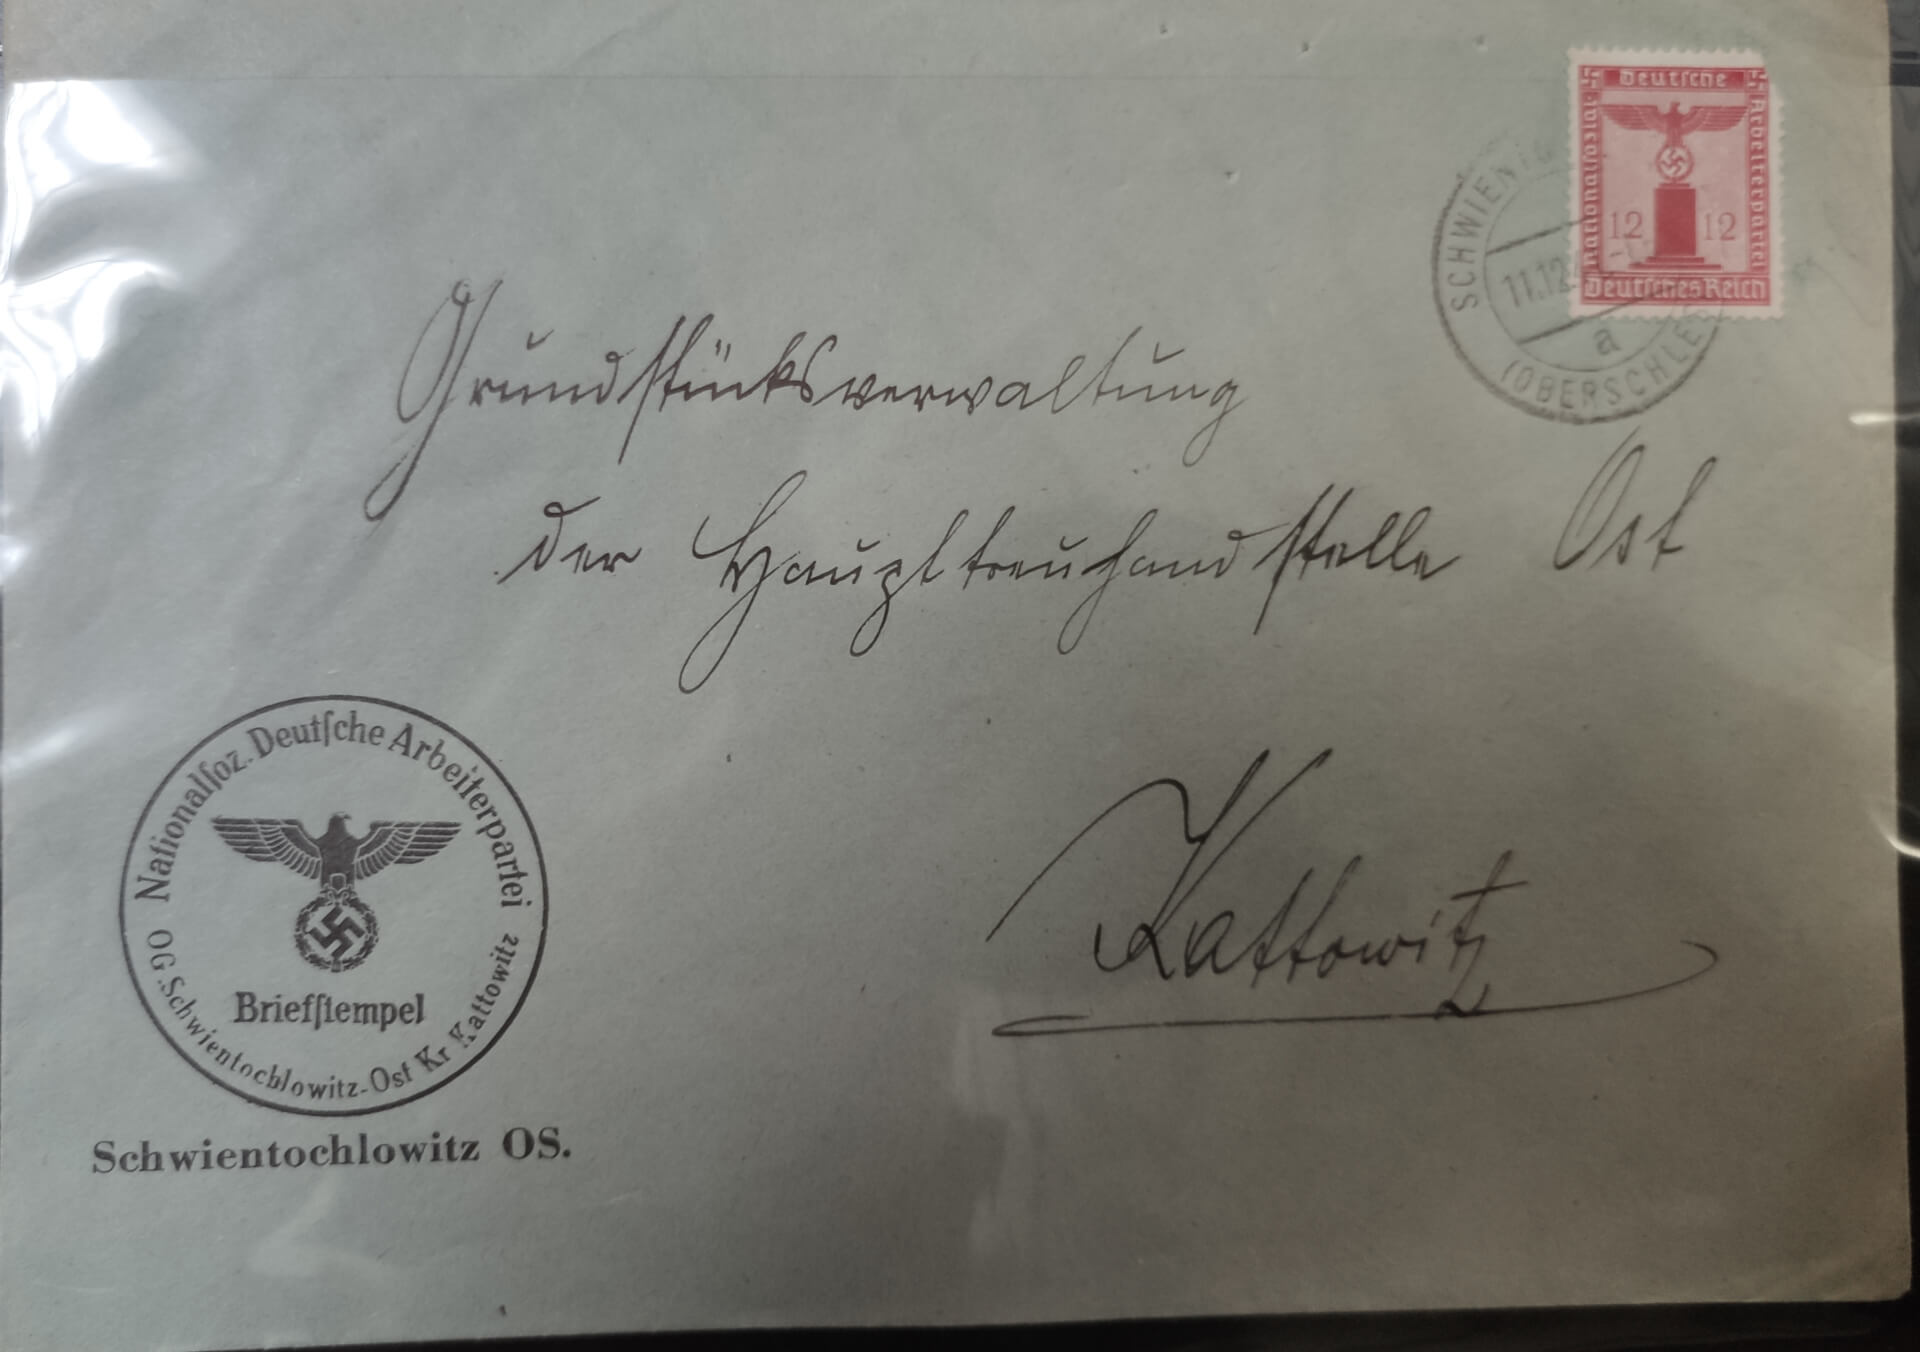 Deutsche
Nationalsozial.
Arbeiterpartei
12 12
Deutsches Reich
11.12.
a
(OBERSCHLES
Grundstücksverwaltung
der Haupttreuhandstelle Ost
Kattowitz
Nationalſoz. Deutſche Arbeiterpartei
Briefſtempel
OG. Schwientochlowitz-Ost Kr Kattowitz
Schwientochlowitz OS.